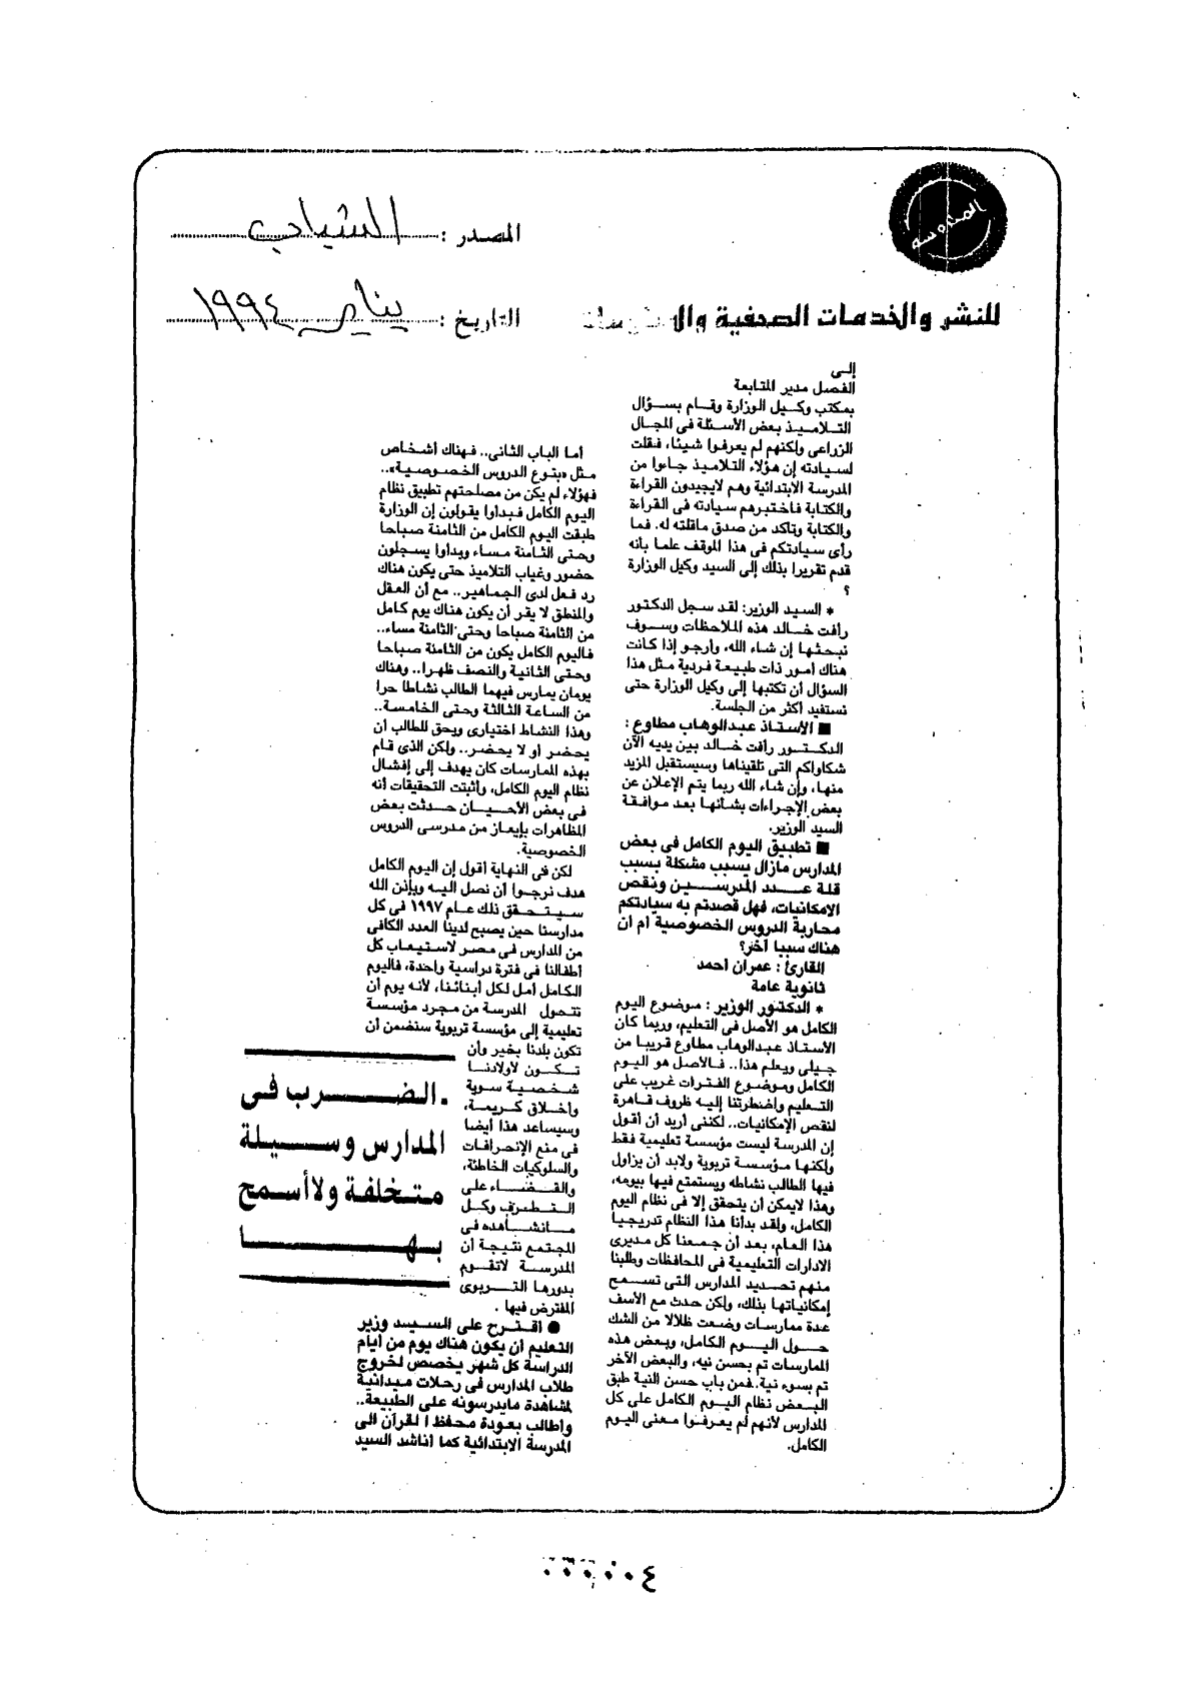 المحروسه
المصدر : الشباب
للنشر والخدمات الصحفية
التاريخ : يناير ١٩٩٤
إلى
الفصل مدير المتابعة
بمكتب وكيل الوزارة وقام بسؤال
التلاميذ بعض الأسئلة فى المجال
الزراعى ولكنهم لم يعرفوا شيئا، فقلت
لسيادته إن هؤلاء التلاميذ جاءوا من
المدرسة الابتدائية وهم لايجيدون القراءة
والكتابة فاختبرهم سيادته فى القراءة
والكتابة وتاكد من صدق ماقلته له. فما
رأى سيادتكم فى هذا الموقف علما بأنه
قدم تقريرا بذلك إلى السيد وكيل الوزارة
؟
* السيد الوزير: لقد سجل الدكتور
رأفت خالد هذه الملاحظات وسوف
نبحثها إن شاء الله، وأرجو إذا كانت
هناك أمور ذات طبيعة فردية مثل هذا
السؤال أن تكتبها إلى وكيل الوزارة حتى
نستفيد أكثر من الجلسة.
■ الأستاذ عبدالوهاب مطاوع :
الدكتور رأفت خالد بين يديه الآن
شكاواكم التى تلقيناها وسيستقبل المزيد
منها، وإن شاء الله ربما يتم الإعلان عن
بعض الإجراءات بشأنها بعد موافقة
السيد الوزير.
■ تطبيق اليوم الكامل فى بعض
المدارس مازال يسبب مشكلة بسبب
قلة عدد المدرسين ونقص
الامكانيات، فهل قصدتم به سيادتكم
محاربة الدروس الخصوصية أم أن
هناك سببا آخر؟
القارئ : عمران احمد
ثانوية عامة
* الدكتور الوزير : موضوع اليوم
الكامل هو الأصل فى التعليم، وربما كان
الأستاذ عبدالوهاب مطاوع قريبا من
جيلى ويعلم هذا.. فالأصل هو اليوم
الكامل وموضوع الفترات غريب على
التعليم واضطرتنا إليه ظروف قاهرة
لنقص الإمكانيات.. لكننى أريد أن أقول
إن المدرسة ليست مؤسسة تعليمية فقط
ولكنها مؤسسة تربوية ولابد أن يزاول
فيها الطالب نشاطه ويستمتع فيها بيومه،
وهذا لايمكن أن يتحقق إلا فى نظام اليوم
الكامل، ولقد بدأنا هذا النظام تدريجيا
هذا العام، بعد أن جمعنا كل مديرى
الادارات التعليمية فى المحافظات وطلبنا
منهم تحديد المدارس التى تسمح
إمكانياتها بذلك، ولكن حدث مع الأسف
عدة ممارسات وضعت ظلالا من الشك
حول اليوم الكامل، وبعض هذه
الممارسات تم بحسن نيه، والبعض الآخر
تم بسوء نية. فمن باب حسن النية طبق
البعض نظام اليوم الكامل على كل
المدارس لأنهم لم يعرفوا معنى اليوم
الكامل.
أما الباب الثانى.. فهناك أشخاص
مثل «بتوع الدروس الخصوصية»..
فهؤلاء لم يكن من مصلحتهم تطبيق نظام
اليوم الكامل فبدأوا يقولون إن الوزارة
طبقت اليوم الكامل من الثامنة صباحا
وحتى الثامنة مساء وبدأوا يسجلون
حضور وغياب التلاميذ حتى يكون هناك
رد فعل لدى الجماهير.. مع أن العقل
والمنطق لا يقر أن يكون هناك يوم كامل
من الثامنة صباحا وحتى الثامنة مساء..
فاليوم الكامل يكون من الثامنة صباحا
وحتى الثانية والنصف ظهرا.. وهناك
يومان يمارس فيهما الطالب نشاطا حرا
من الساعة الثالثة وحتى الخامسة..
وهذا النشاط اختيارى ويحق للطالب أن
يحضر أو لا يحضر.. ولكن الذى قام
بهذه الممارسات كان يهدف إلى إفشال
نظام اليوم الكامل، وأثبتت التحقيقات أنه
فى بعض الأحيان حدثت بعض
المظاهرات بإيعاز من مدرسى الدروس
الخصوصية.
لكن فى النهاية أقول إن اليوم الكامل
هدف نرجوا أن نصل اليه وبإذن الله
سيتحقق ذلك عام ١٩٩٧ فى كل
مدارسنا حين يصبح لدينا العدد الكافى
من المدارس فى مصر لاستيعاب كل
أطفالنا فى فترة دراسية واحدة، فاليوم
الكامل أمل لكل أبنائنا، لأنه يوم أن
تتحول المدرسة من مجرد مؤسسة
تعليمية إلى مؤسسة تربوية سنضمن أن
تكون بلدنا بخير وأن
تكون لأولادنا
شخصية سوية
وأخلاق كريمة،
وسيساعد هذا أيضا
فى منع الإنحرافات
والسلوكيات الخاطئة،
والقضاء على
التطرف وكل
مانشاهده فى
المجتمع نتيجة أن
المدرسة لاتقوم
بدورها التربوى
المفترض فيها .
الضرب فى
المدارس وسيلة
متخلفة ولاأسمح
بها
● أقترح على السيد وزير
التعليم أن يكون هناك يوم من أيام
الدراسة كل شهر يخصص لخروج
طلاب المدارس فى رحلات ميدانية
لمشاهدة مايدرسونه على الطبيعة..
وأطالب بعودة محفظ القرآن الى
المدرسة الابتدائية كما أناشد السيد